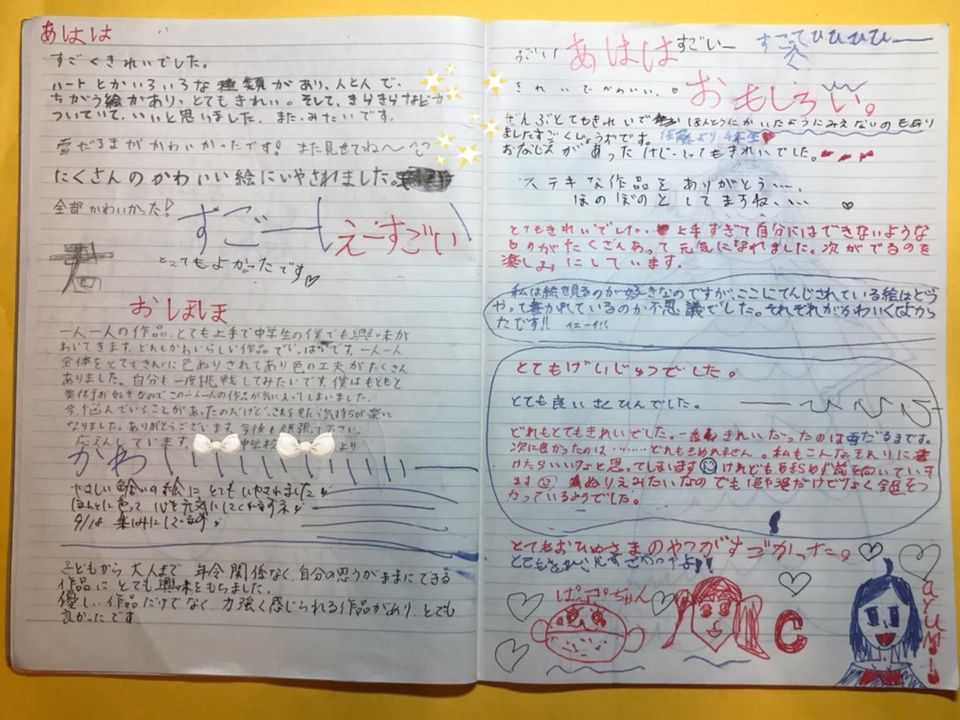 あはは
すごくきれいでした。
ハートとかいろいろな種類があり、人とんで、
ちがう絵があり、とてもきれい。そして、きらきらなどが
ついていて、いいと思いました。また、みたいです。
雪だるまがかわいかったです! また見せてね〜
たくさんのかわいい絵にいやされました。
全部かわいかった!
すごーい
えーすごい
とってもよかったです♡
おしほしほ
一人一人の作品、とても上手で中学生の僕でも興味が
わいてきます。どれもかわいらしい作品でいっぱいです。一人一人
全体をとてもきれいに色ぬりされてあり色の工夫がたくさん
ありました。自分も一度挑戦してみたいです。僕はもともと
美術が好きなのでこの一人一人の作品が気に入ってしまいました。
今、悩んでいることがあったのだけど、これを見たら気持ちが楽に
なりました。ありがとうございます。今後も頑張って下さい。
応えんしています。 中学校 より
かわいいー
やさしい絵に とてもいやされました
ほんとに色って 心を元気にしてくれますネ
9/18
子どもから大人まで 年令関係なく、自分の思うがままにできる
作品に とても興味をもちました。
優しい作品だけでなく、力強く感じられる作品があり、とても
良かったです。
すごい あはは すごいー すごってひひひひー
きれいでかわいい。
おもしろい。
ぜんぶとてもきれいで ほんとうにかいたようにみえないのもあり
ましたすごくしょうげきです。
おなじえがあったけどとってもきれいでした。
ステキな作品を ありがとう…、
ほのぼのと してますね、、、 ♡
とてもきれいでした。上手すぎて自分にはできないような
ものがたくさんあって 元気になれました。次がでるのを
楽しみにしています。
私は絵を見るのが好きなのですが、ここにてんじされている絵はどう
やって書かれているのか不思議でした。それぞれがかわいくてよかっ
たです!! イエーイ!!
とてもげいじゅつでした。
とても良いさくひんでした。
どれもとてもきれいでした。一番きれいだったのは雪だるまです。
次に良かったのは……どれもきめれません。私もこんなきれいに書
けたらいいなぁと思ってしまいます けれどもあきらめず前を向いていき
ます ぬりえみたいなの でも
とてもおひめさまのやつがすごかった。
ぱっぴちゃん
C
ayumi